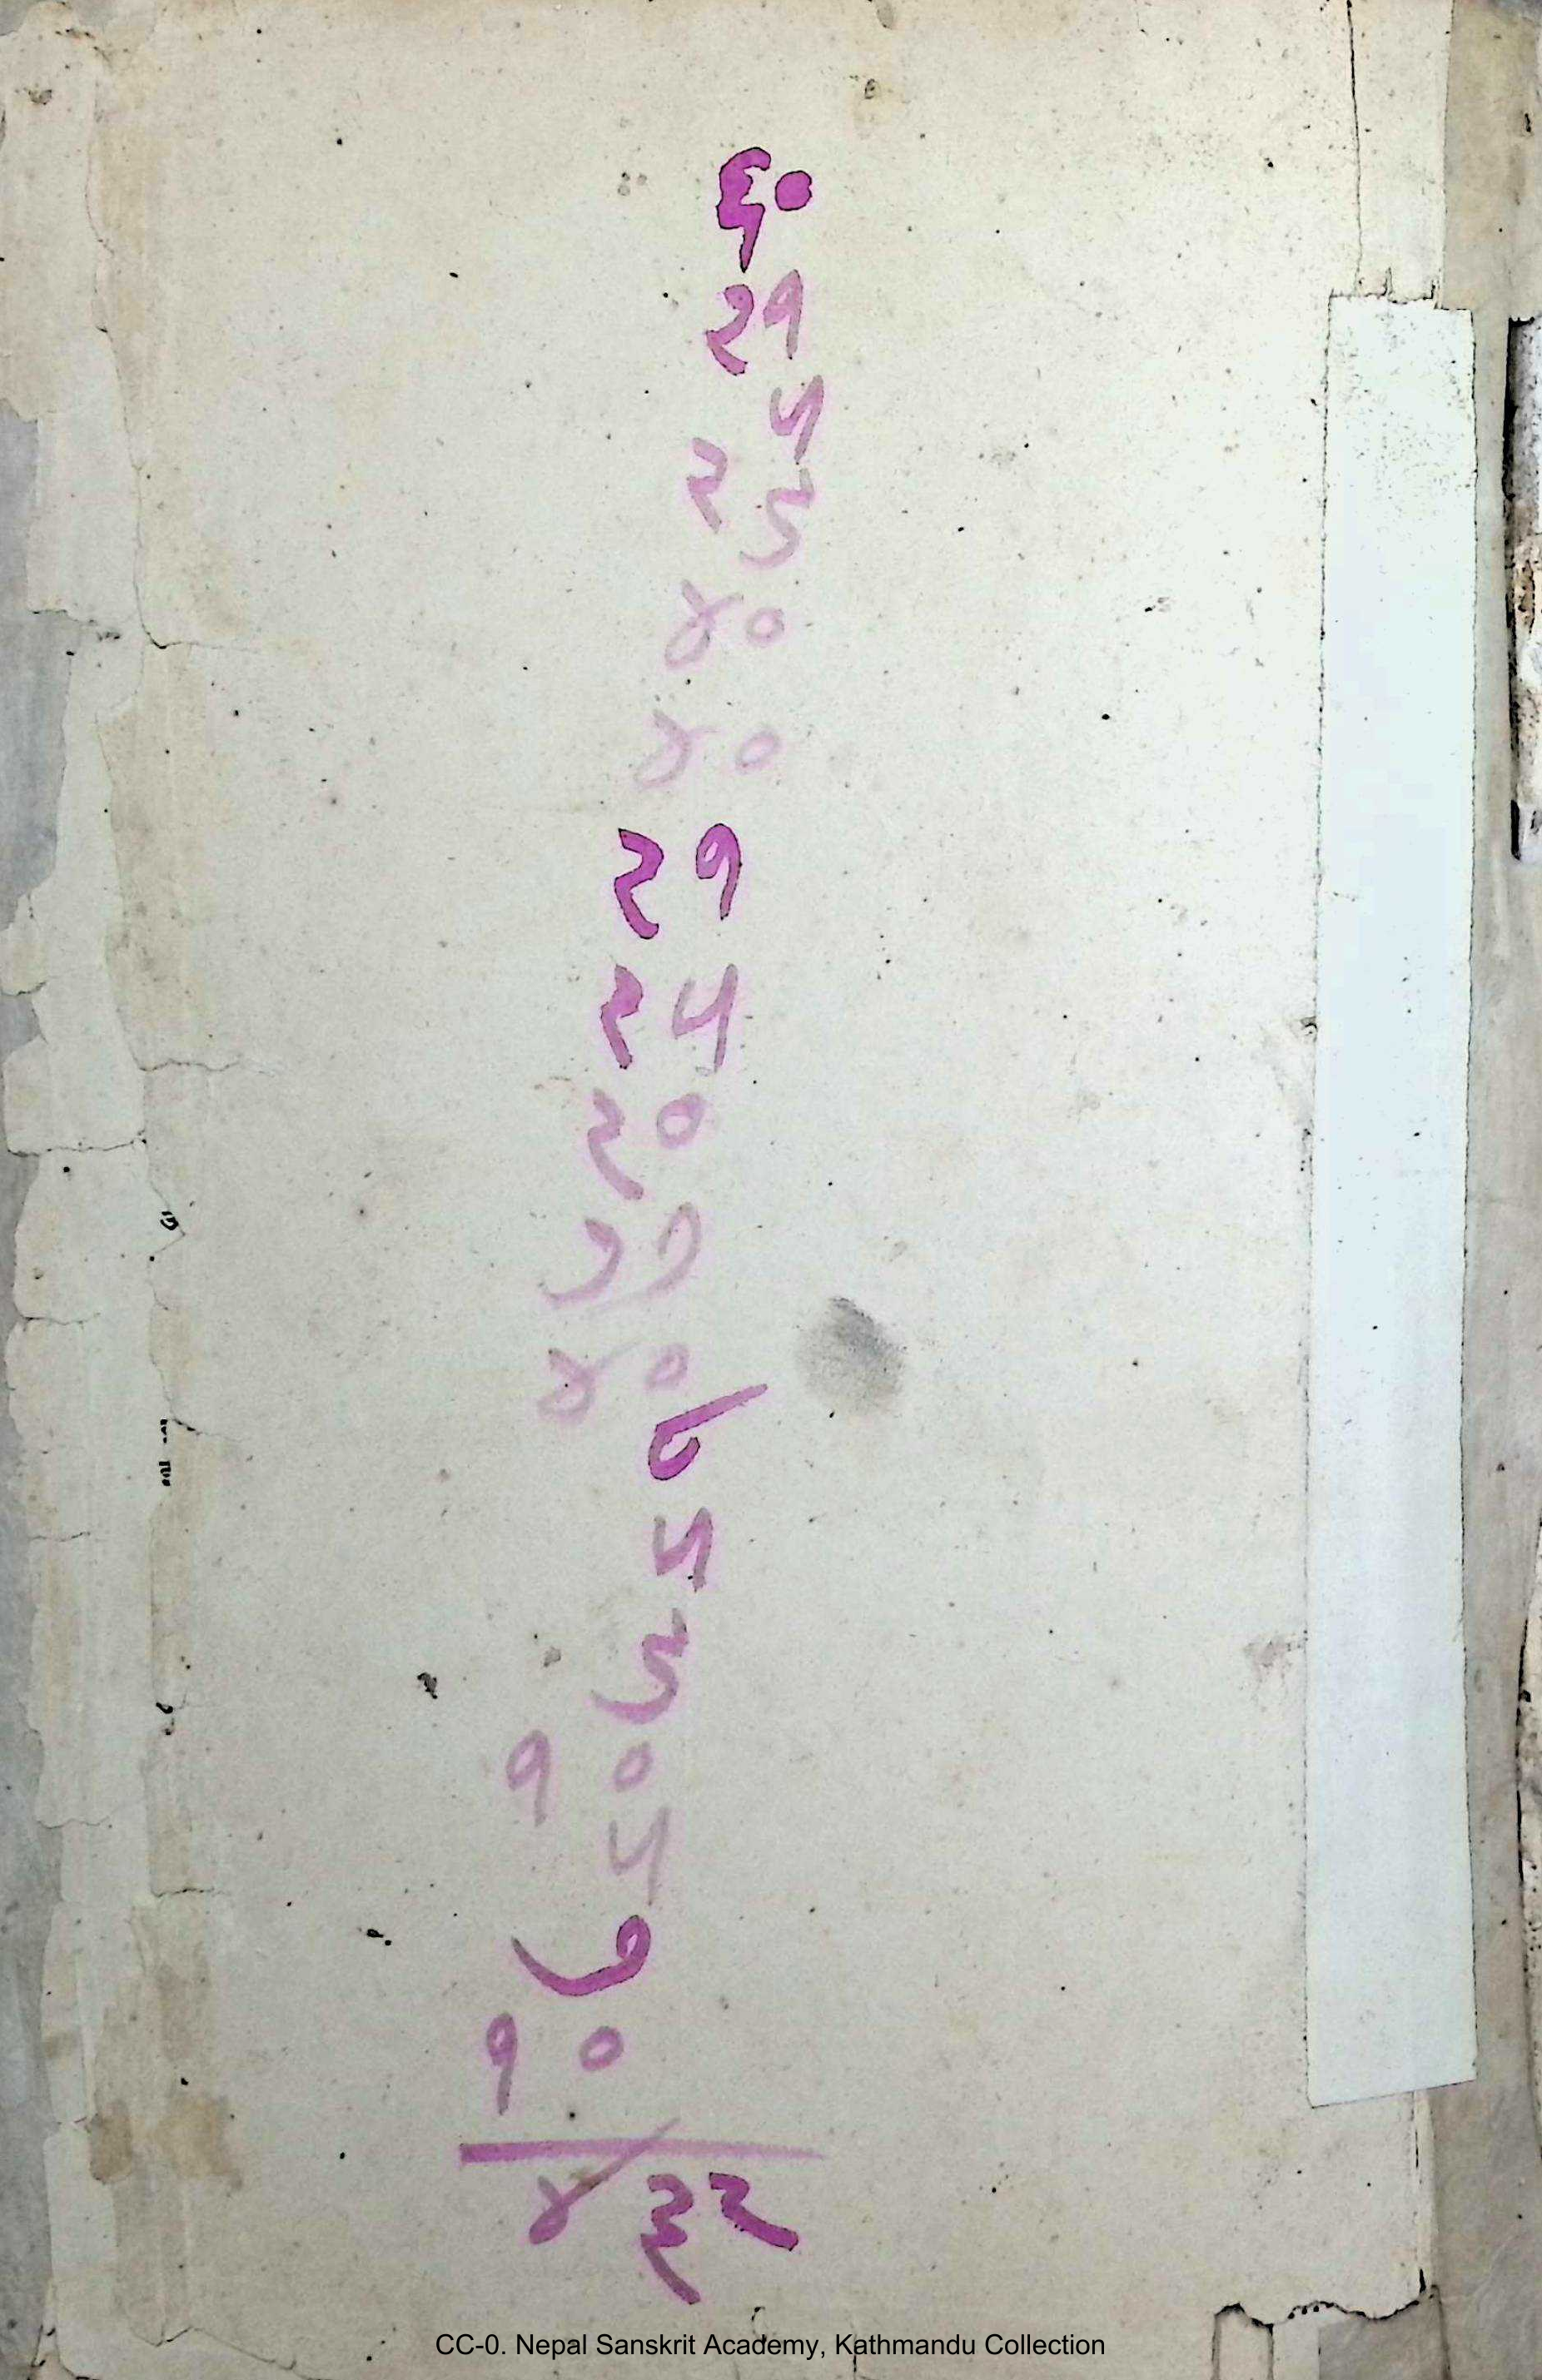 ६०
२१
५
२९
४०
४०
२१
२५
२०
७७
४०
८
५
९
१०
५
७
१०
४३२
CC-0. Nepal Sanskrit Academy, Kathmandu Collection